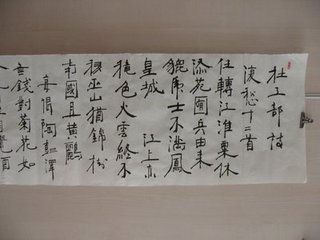 杜工部詩
復愁十二首
任轉江淮粟休
添苑囿兵由来
貔虎士不滿鳳
皇城 江上亦
穐色火雲終不
移巫山猶錦樹
南國且黃鸝
每恨陶彭澤
無錢對菊花如